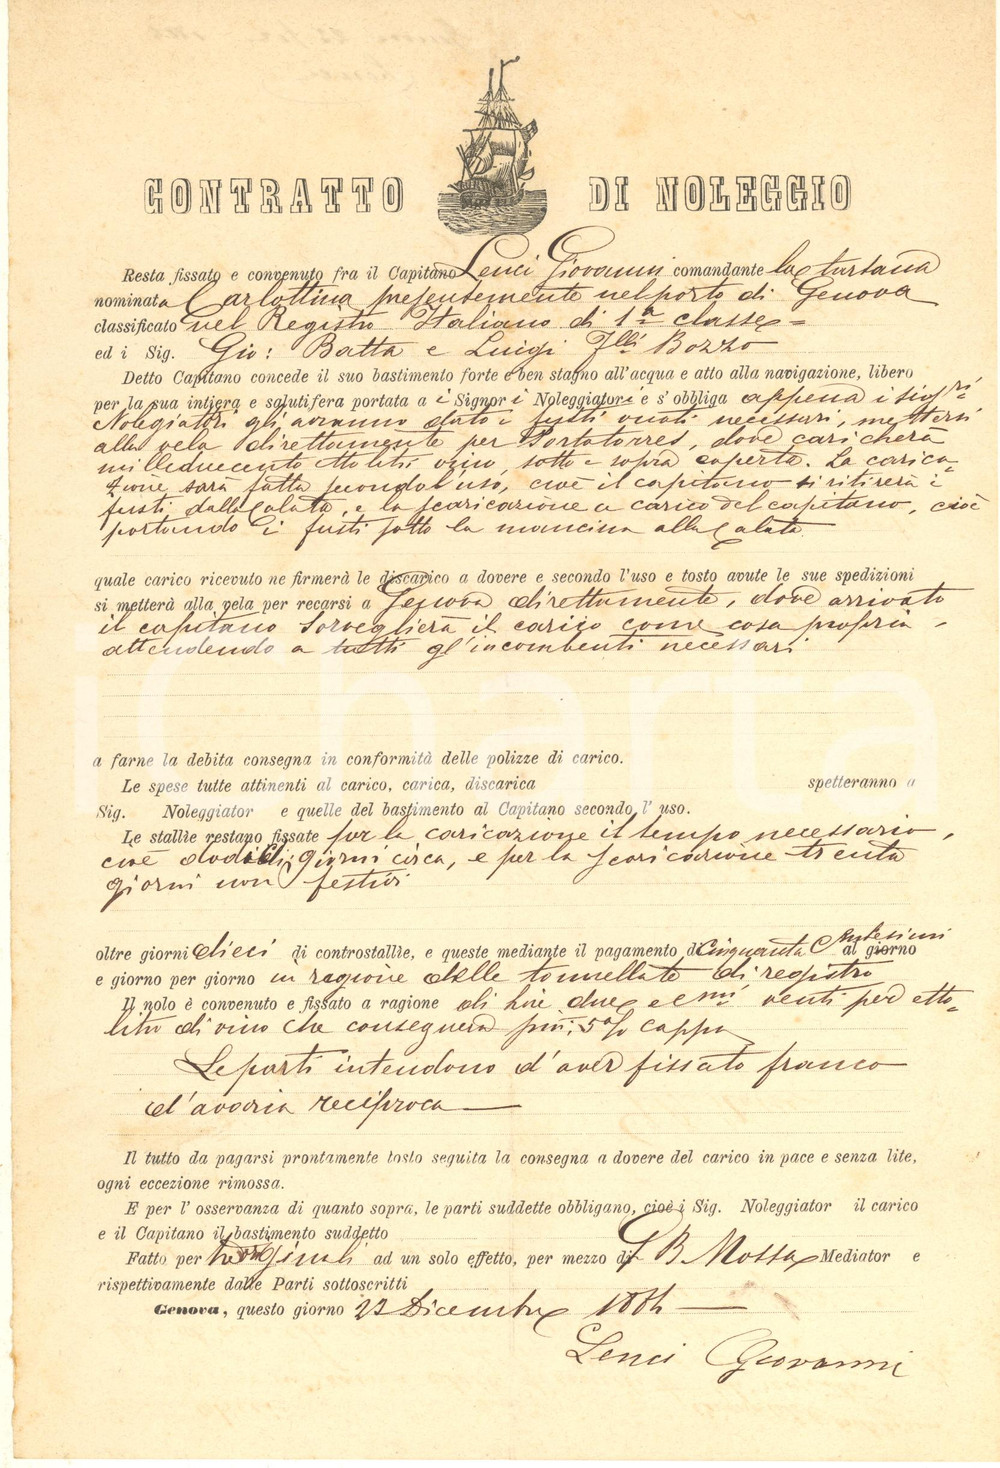 CONTRATTO DI NOLEGGIO
Resta fissato e convenuto fra il Capitano Lenci Giovanni comandante la tartana
nominata Carlottina presentemente nel porto di Genova
classificato nel Registro Italiano di 1ª classe =
ed i Sig. Gio: Batta e Luigi Flli Bozzo
Detto Capitano concede il suo bastimento forte e ben stagno all'acqua e atto alla navigazione, libero
per la sua intiera e salutifera portata a i Signor i Noleggiatori e s'obbliga appena i sigri
Nolegiatori gli avranno dato i fusti vuoti necessari, mettersi
alla vela direttamente per Portotorres, dove caricherà
milleduecento ettolitri vino, sotto e sopra coperta. La carica-
zione sarà fatta secondo l'uso, cioè il capitano si ritirerà i
fusti dalla Calata, e la scaricazione a carico del capitano, cioè
portando i fusti sotto la mancina alla Calata
quale carico ricevuto ne firmerà le discarico a dovere e secondo l'uso e tosto avute le sue spedizioni
si metterà alla vela per recarsi a Genova direttamente, dove arrivato
il capitano sorveglierà il carico come cosa propria -
attendendo a tutti gl'incombenti necessari
a farne la debita consegna in conformità delle polizze di carico.
Le spese tutte attinenti al carico, carica, discarica spetteranno a
Sig. Noleggiator e quelle del bastimento al Capitano secondo l'uso.
Le stallie restano fissate per la caricazione il tempo necessario,
cioè dodici giorni circa, e per la scaricazione trenta
giorni non festivi
oltre giorni dieci di controstallie, e queste mediante il pagamento di Cinquanta Centesimi al giorno
e giorno per giorno in ragione delle tonnellate di registro
Il nolo è convenuto e fissato a ragione di lire due e cmi venti per etto-
litro di vino che consegnerà più 5% cappa
Le parti intendono d'aver fissato franco
d'avaria reciproca
Il tutto da pagarsi prontamente tosto seguita la consegna a dovere del carico in pace e senza lite,
ogni eccezione rimossa.
E per l'osservanza di quanto sopra, le parti suddette obbligano, cioè i Sig. Noleggiator il carico
e il Capitano il bastimento suddetto
Fatto per ad un solo effetto, per mezzo di B Mossa Mediator e
rispettivamente dalle Parti sottoscritti
Genova, questo giorno 23 Dicembre 1886
Lenci Giovanni